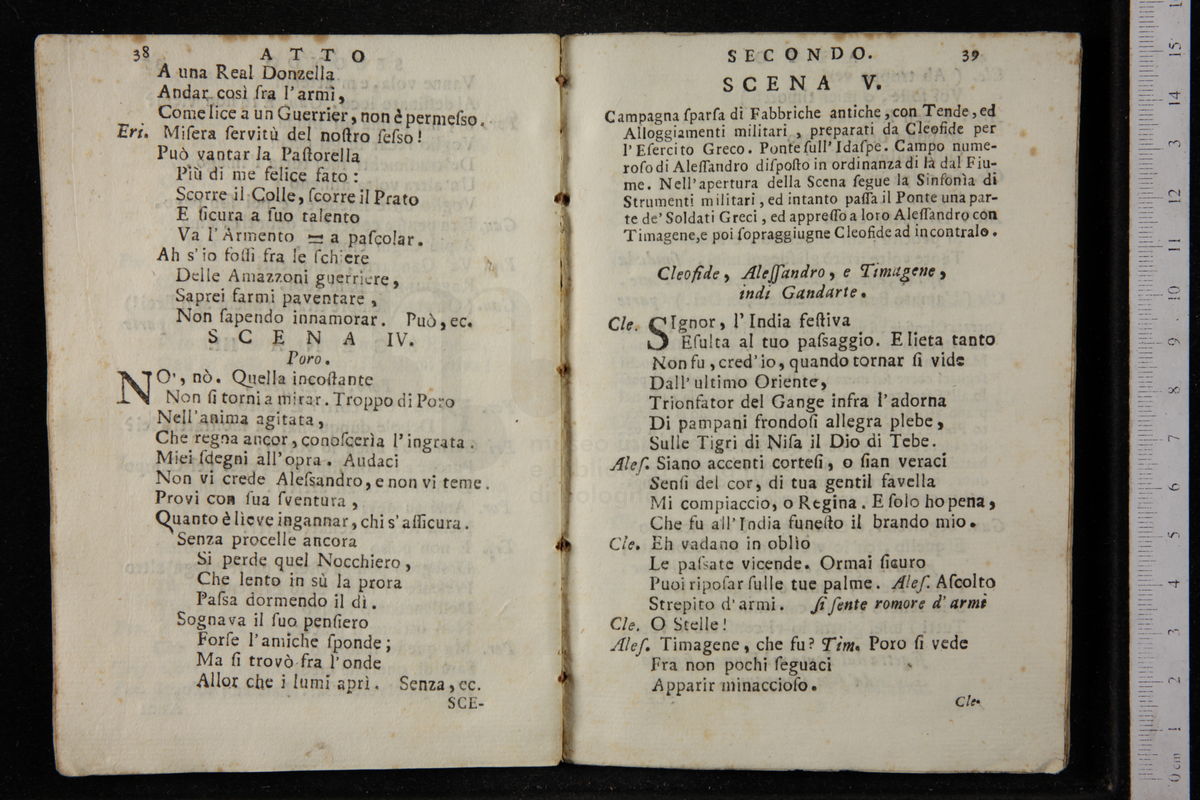 38 ATTO
A una Real Donzella
Andar così fra l'armi,
Come lice a un Guerrier, non è permeſso.
Eri. Miſera ſervitù del noſtro ſeſso!
Può vantar la Paſtorella
Più di me felice fato:
Scorre il Colle, ſcorre il Prato
E ſicura a ſuo talento
Va l'Armento = a paſcolar.
Ah s'io foſſi fra le ſchiere
Delle Amazzoni guerriere,
Saprei farmi paventare,
Non ſapendo innamorar. Può, ec.
SCENA IV.
Poro.
NO', nò. Quella incoſtante
Non ſi torni a mirar. Troppo di Poro
Nell'anima agitata,
Che regna ancor, conoſcerìa l'ingrata.
Miei ſdegni all'opra. Audaci
Non vi crede Aleſsandro, e non vi teme.
Provi con ſua ſventura,
Quanto è lieve ingannar, chi s'aſſicura.
Senza procelle ancora
Si perde quel Nocchiero,
Che lento in sù la prora
Paſsa dormendo il dì.
Sognava il ſuo penſiero
Forſe l'amiche ſponde;
Ma ſi trovò fra l'onde
Allor che i lumi aprì. Senza, ec.
SCE-
SECONDO. 39
SCENA V.
Campagna ſparſa di Fabbriche antiche, con Tende, ed
Alloggiamenti militari, preparati da Cleofide per
l'Eſercito Greco. Ponte ſull'Idaſpe. Campo nume-
roſo di Aleſſandro diſpoſto in ordinanza di là dal Fiu-
me. Nell'apertura della Scena ſegue la Sinfonìa di
Strumenti militari, ed intanto paſſa il Ponte una par-
te de' Soldati Greci, ed appreſſo a loro Aleſſandro con
Timagene, e poi ſopraggiugne Cleofide ad incontralo.
Cleofide, Aleſſandro, e Timagene,
indi Gandarte.
Cle. SIgnor, l'India feſtiva
Eſulta al tuo paſsaggio. E lieta tanto
Non fu, cred'io, quando tornar ſi vide
Dall'ultimo Oriente,
Trionfator del Gange infra l'adorna
Di pampani frondoſi allegra plebe,
Sulle Tigri di Niſa il Dio di Tebe.
Aleſ. Siano accenti corteſi, o ſian veraci
Senſi del cor, di tua gentil favella
Mi compiaccio, o Regina. E ſolo ho pena,
Che fu all'India funeſto il brando mio.
Cle. Eh vadano in oblìo
Le paſsate vicende. Ormai ſicuro
Puoi ripoſar ſulle tue palme. Aleſ. Aſcolto
Strepito d'armi. ſi ſente romore d'armi
Cle. O Stelle!
Aleſ. Timagene, che fu? Tim. Poro ſi vede
Fra non pochi ſeguaci
Apparir minaccioſo.
Cle.